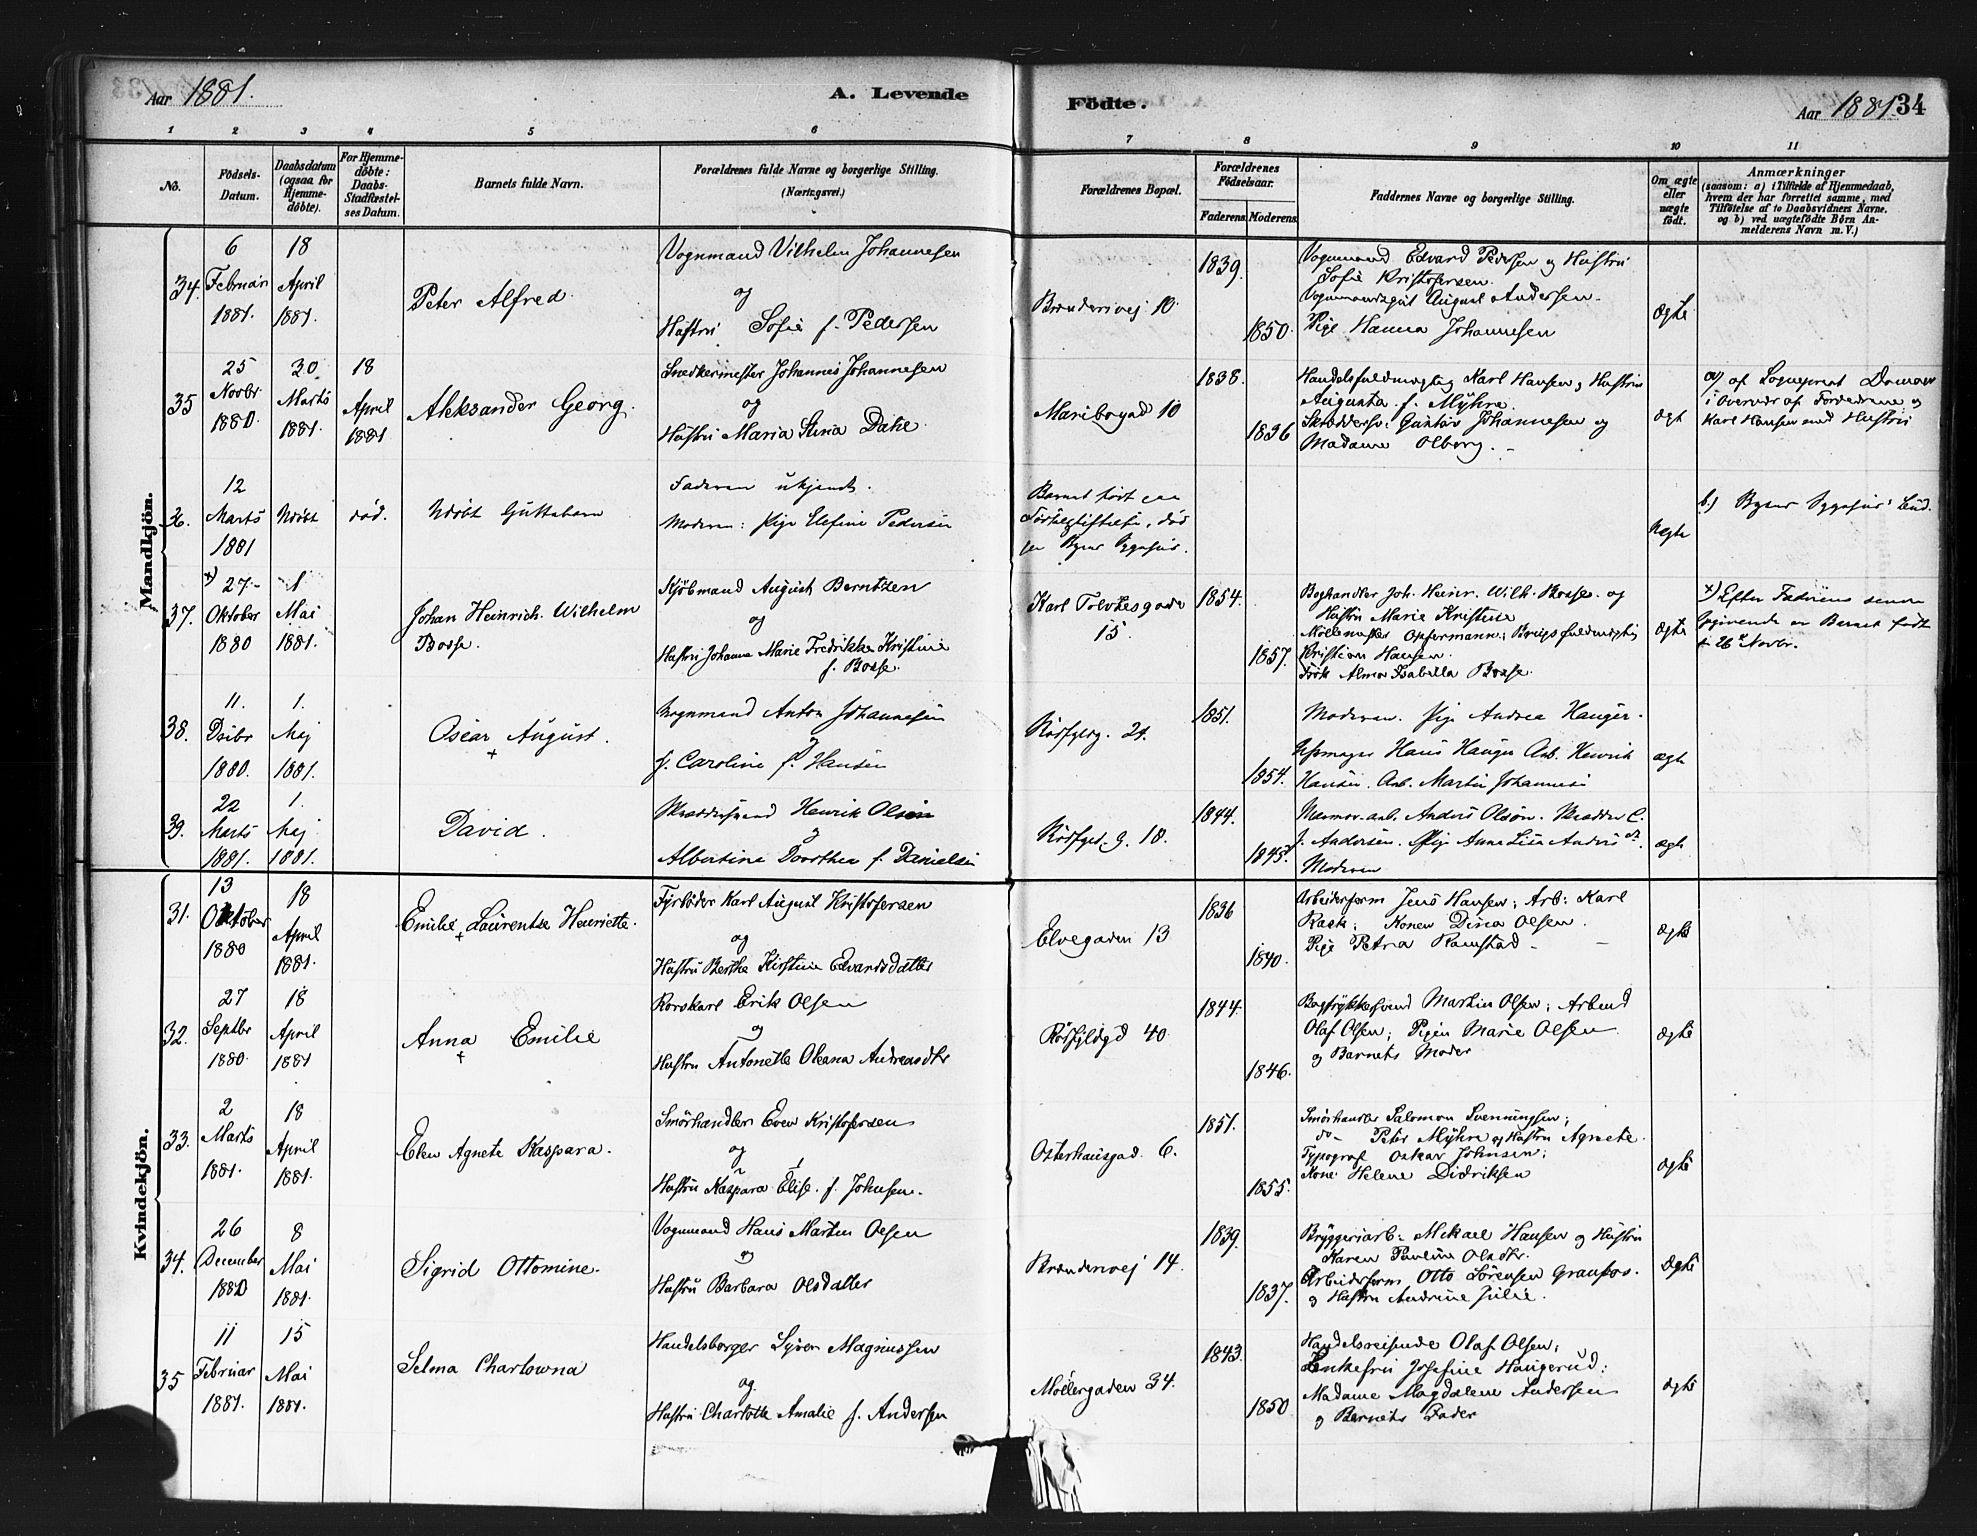 Aar 1881.
A. Levende
Födte.
Aar 1881. 34
1 2 3 4 5 6 7 8 9 10 11
No.
Födsels-
Datum.
Daabsdatum
(ogsaa for
Hjemme-
döbte).
For Hjemme-
döbte:
Daabs-
Stadfæstel-
ses Datum.
Barnets fulde Navn.
Forældrenes fulde Navne og borgerlige Stilling.
(Næringsvei.)
Forældrenes Bopæl.
Forældrenes
Födselsaar.
Faderens. Moderens.
Faddernes Navne og borgerlige Stilling.
Om ægte
eller
uægte
födt.
Anmærkninger
(saasom: a) i Tilfælde af Hjemmedaab,
hvem der har forrettet samme, med
Tilföielse af to Daabsvidners Navne,
og b) ved uægtefödte Börn An-
melderens Navn m. V.)
Mandkjön.
34.
6
Februar
1881.
18
April
1881.
Peter Alfred
Vognmand Vilhelm Johannesen
og
Hustru Sofie f. Pedersen
Brænderivej 10.
1839.
1850.
Vognmand Edvard Pedersen og Hustru
Sofie Kristofersen.
August Andersen
Pige Hanna Johannesen
ægte
35
25
Novbr.
1880.
30
Marts
1881.
18
April
1881
Aleksander Georg.
Snedkermester Johannes Johannesen
og
Hustru Maria Stina Dahe.
Maribogad 10
1838.
1836
Handelsfuldmægtig Karl Hansen og Hustru
Augusta f. Myhre.
Gustav Johannesen og
Madame Olberg.
ægt
a) af Sogneprest
i Overvær af Forældrene og
Karl Hansen med Hustru
36.
12
Marts
1881
Udöbt
död.
Udöbt Guttebarn
Faderen ukjendt.
Moderen: Pige Elefine Pedersen
Barnet födt paa
Födselsstiftelsen, död
paa Byens Sygehus.
uægte
b) Byens Sygehus
37.
x) 27
Oktober
1880
1
Mai
1881.
Johan Heinrich Wilhelm
Bosse.
Kjöbmand August Berntzen
og
Hustru Johanne Marie Fredrikke Kristine
f. Bosse.
Karl Tolvtesgade
15.
1854.
1857.
Boghandler Joh. Heinr. Wilh. Bosse og
Hustru Marie Kristine
Möllemester Opfermann; Brugsfuldmægtig
Kristian Hansen.
Frök Alma Isabella Bosse.
ægte
x) Efter Faderens senere
Opgivende er Barnet födt
26 Novbr.
38.
11.
Dcibr
1880.
1.
Maj
1881.
Oscar August.
+
Vognmand Anton Johannesen
og
f. Caroline f. Hansen
Rosfgldg. 24.
1851.
1854.
Moderen. Pige Andrea Hauger.
Hans Hauger. Arb. Henrik
Hansen. Arb. Martin Johannesen
ægte
39.
22
Marts
1881.
1.
Maj
1881.
David.
Skræddersvend Henrik Olsen
og
Albertine Dorothea f. Danielsen
1844.
1845.
Marmorarb. Anders Olsön. Skrædder C.
J. Andersen. Pige Anne Lise
Moderen
ægt
Kvindekjön.
31.
13
Oktober
1880
18
April
1881.
Emilie Laurentze Henriette.
+
Fyrböder Karl August Kristofersen
og
Hustru Berthe Kirstine Edvardsdatter
Elvegaden 13
1836
1840.
Arbeidsform. Jens Hansen; Arb: Karl
Rask; Konen Dina Olsen.
Pige Petra Ramstad
ægte
32.
27
Septbr
1880.
18
April
1881
Anna Emilie
+
Rorskarl Erik Olsen
og
Hustru Antonette Oleana Andreasdtr
40
1844.
1846.
Bogtrykkersvend Martin Olsen; Arbmd
Olaf Olsen; Pigen Marie Olsen
og Barnets Moder
ægte
33.
2
Marts
1881.
18
April
1881.
Elen Agnete Kaspara.
Smörhandler Even Kristofersen
og
Hustru Kaspara Elise f. Johnsen.
Osterhausgad. 6.
1851.
1855.
Smörhandler Salomon Svenningsen;
do Peter Myhre og Hustru Agnete.
Typograf Oskar Johnsen;
Kone Helene Didriksen
ægte
34.
26
December
1880
8
Mai
1881.
Sigrid Ottomine.
Vognmand Hans Martin Olsen
og
Hustru Barbara Olsdatter
Brænderivej 14.
1839.
1837.
Bryggeriarb: Mikael Hansen og Hustru
Karen Pauline Olsdtr.
Arbeidsform Otto Sörensen Granfos.
og Hustru Andrine Julie.
ægte
35
11
Februar
1881.
15
Mai
1881.
Selma Charlowna
Handelsborger Syver Magnussen
og
Hustru Charlotte Amalie f. Andersen
Möllergaden 34.
1843.
1850
Handelsreisende Olaf Olsen;
Enkefru Josefine Haugerud;
Madame Magdalene Andersen
og Barnets Fader
ægte